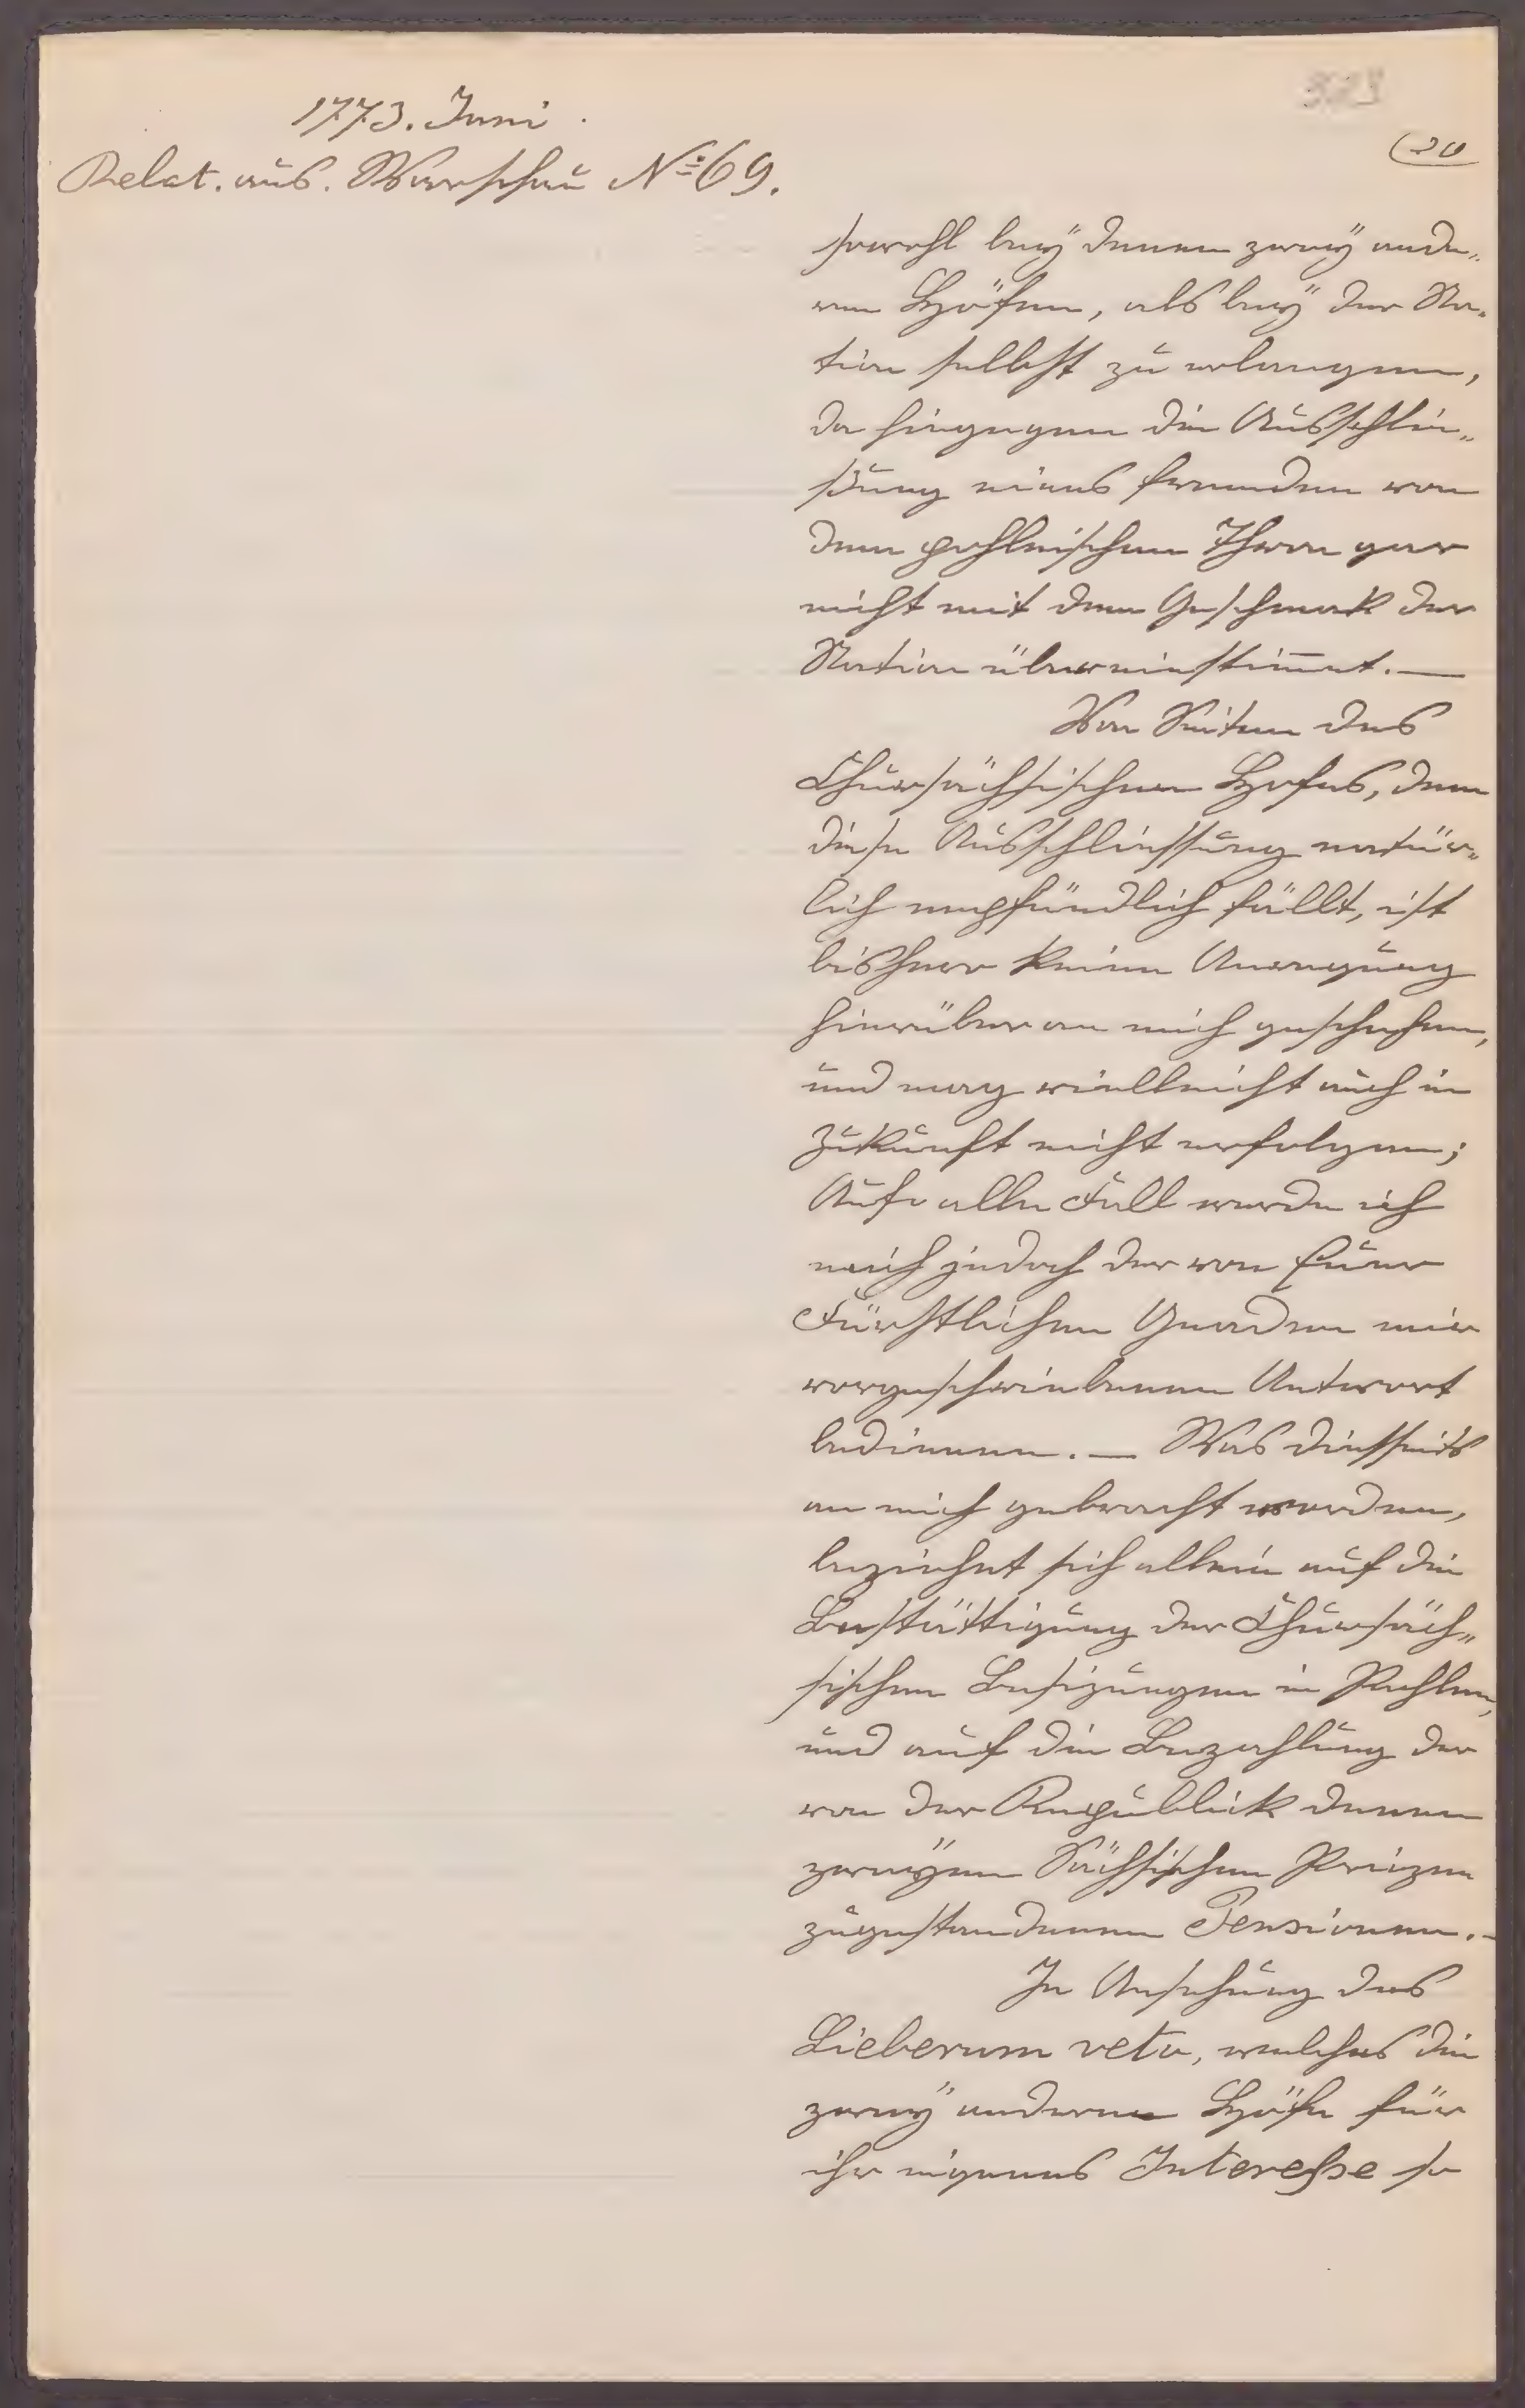 1773. Juni.
Relat. aus. Warschau No 69.
(20
sowohl bey denen zwey ande„
ren Höfen, als bey der Na„
tion selbst zu erlangen,
da hingegen die Ausschlie„
ßung eines fremden von
dem pohlnischen Thron gar
nicht mit dem Geschmak der
Nation übereinstimmt. —
Von Seiten des
Chursächsischen Hofes, dem
diese Ausschliessung natür„
lich empfündlich fällt, ist
bisher keine Anregung
hierüber an mich geschehen,
und mag vielleicht auch in
Zukunft nicht erfolgen;
Auf alle Fäll werde ich
mich jedoch der von Euer
Fürstlichen Gnaden mir
vorgeschriebenen Antwort
bedienen. — Was diesseits
an mich gebracht worden,
beziehet sich allein auf die
Bestättigung der Chursäch„
sischen Besizungen in Pohlen,
und auf die Bezahlung der
von der Republick denen
zweyen Sächsischen Prinzen
zugestandenen Pensionen. —
In Ansehung des
Lieberum veto, welches die
zwey anderen Höfe für
ihr eigenes Interesse so